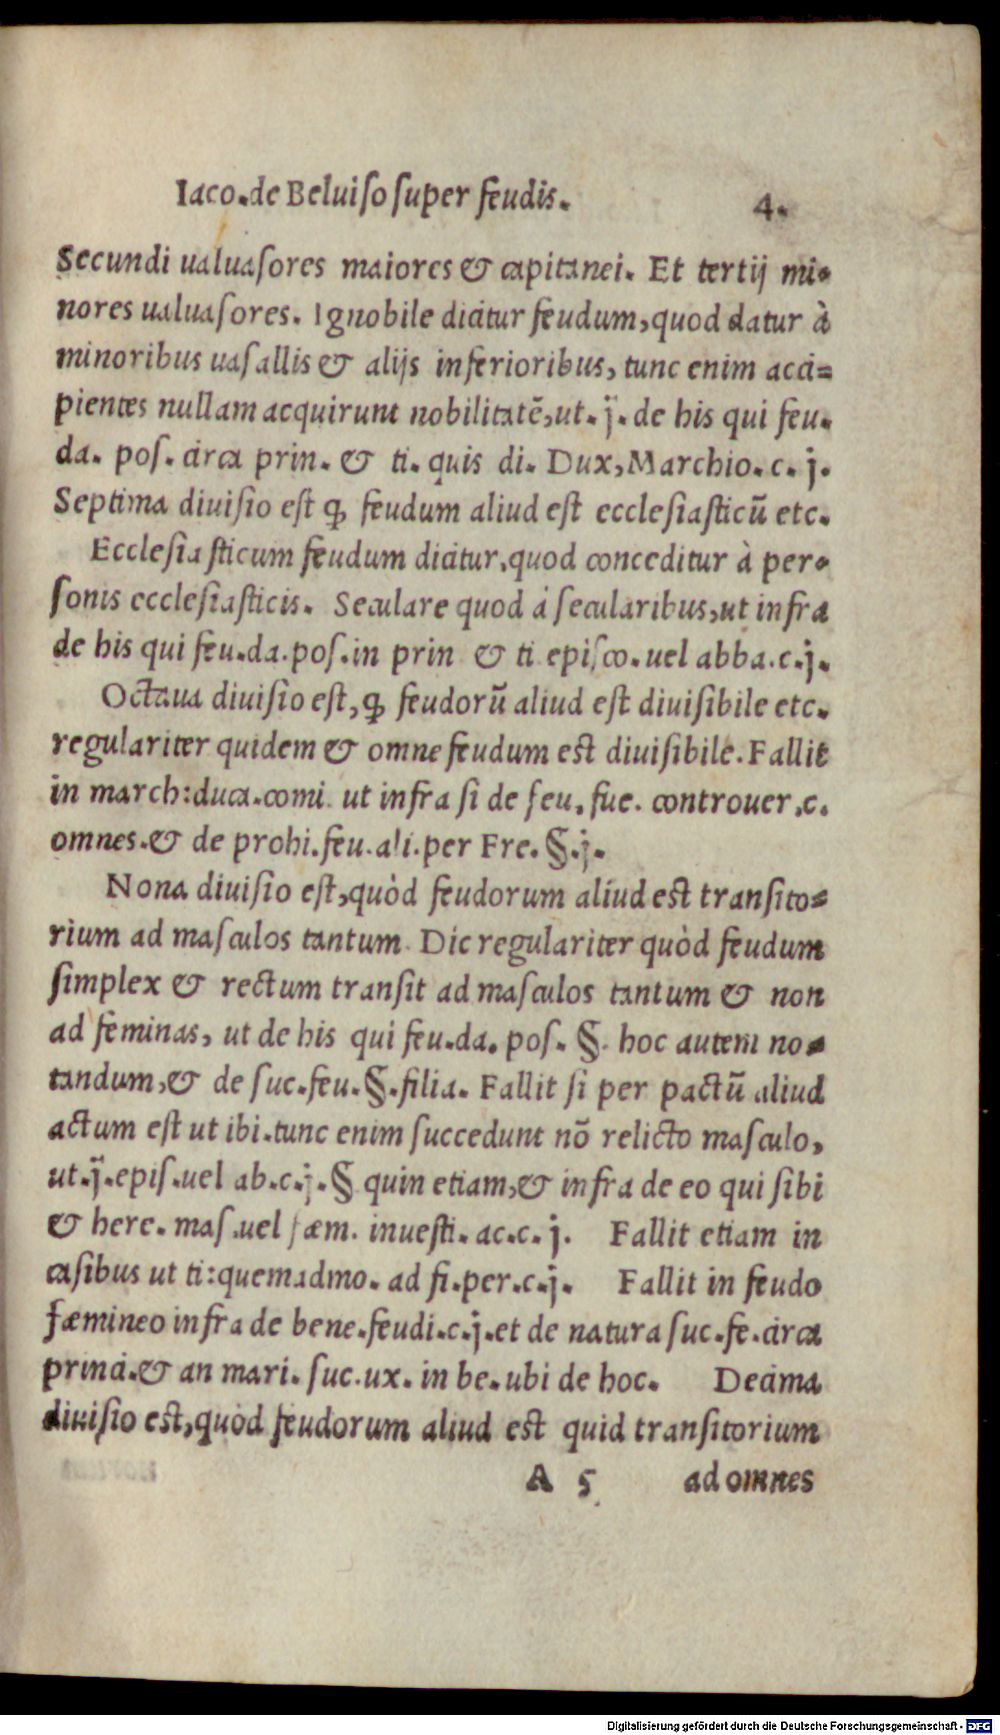 Iaco.de Beluiso super feudis. 4.
Secundi ualuasores maiores & capitanei. Et tertij mi-
nores ualuasores. Ignobile dicitur feudum, quod datur à
minoribus uasallis & alijs inferioribus, tunc enim acci=
pientes nullam acquirunt nobilitatẽ, ut. j̈. de his qui feu.
da. pos. circa prin. & ti. quis di. Dux, Marchio. c. j.
Septima diuisio est ꝙ feudum aliud est ecclesiasticũ etc.
Ecclesiasticum feudum dicitur, quod conceditur à per-
sonis ecclesiasticis. Seculare quod à secularibus, ut infra
de his qui feu.da.pos.in prin & ti episco.uel abba.c.j.
Octaua diuisio est, ꝙ feudorũ aliud est diuisibile etc.
regulariter quidem & omne feudum est diuisibile. Fallit
in march:duca.comi. ut infra si de feu. fue. controuer.c.
omnes.& de prohi.feu.ali.per Fre. §.j.
Nona diuisio est, quòd feudorum aliud est transito=
rium ad masculos tantum. Dic regulariter quòd feudum
simplex & rectum transit ad masculos tantum & non
ad feminas, ut de his qui feu.da. pos. §. hoc autem no=
tandum, & de suc.feu.§.filia. Fallit si per pactũ aliud
actum est ut ibi.tunc enim succedunt nõ relicto masculo,
ut.j̈.epis.uel ab.c.j.§ quin etiam, & infra de eo qui sibi
& here. mas.uel fæm. inuesti. ac.c. j. Fallit etiam in
casibus ut ti:quemadmo. ad fi.per.c.j. Fallit in feudo
fæmineo infra de bene.feudi.c.j.et de natura suc.fe.circa
princi.& an mari. suc.ux. in be.ubi de hoc. Decima
diuisio est, quòd feudorum aliud est quid transitorium
A 5 ad omnes
Digitalisierung gefördert durch die Deutsche Forschungsgemeinschaft - DFG